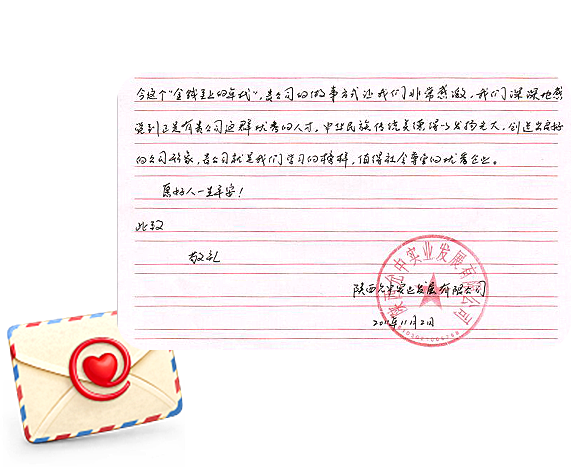 今这个“金钱至上的年代”，贵公司的做事方式让我们非常感激，我们深深地感
觉到正是有贵公司这群优秀的人才，中华民族传统美德得以发扬光大，创造出良好
的公司形象，贵公司就是我们学习的榜样，值得社会尊重的优秀企业。
愿好人一生平安！
此致
敬礼
陕西 中实业发展有限公司
11月2日